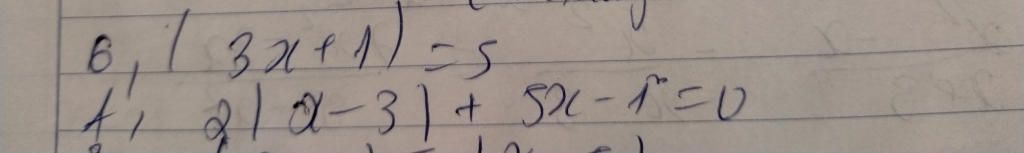 6, | 3x+1) = 5
1, 2| x-3| + 5x-1=0